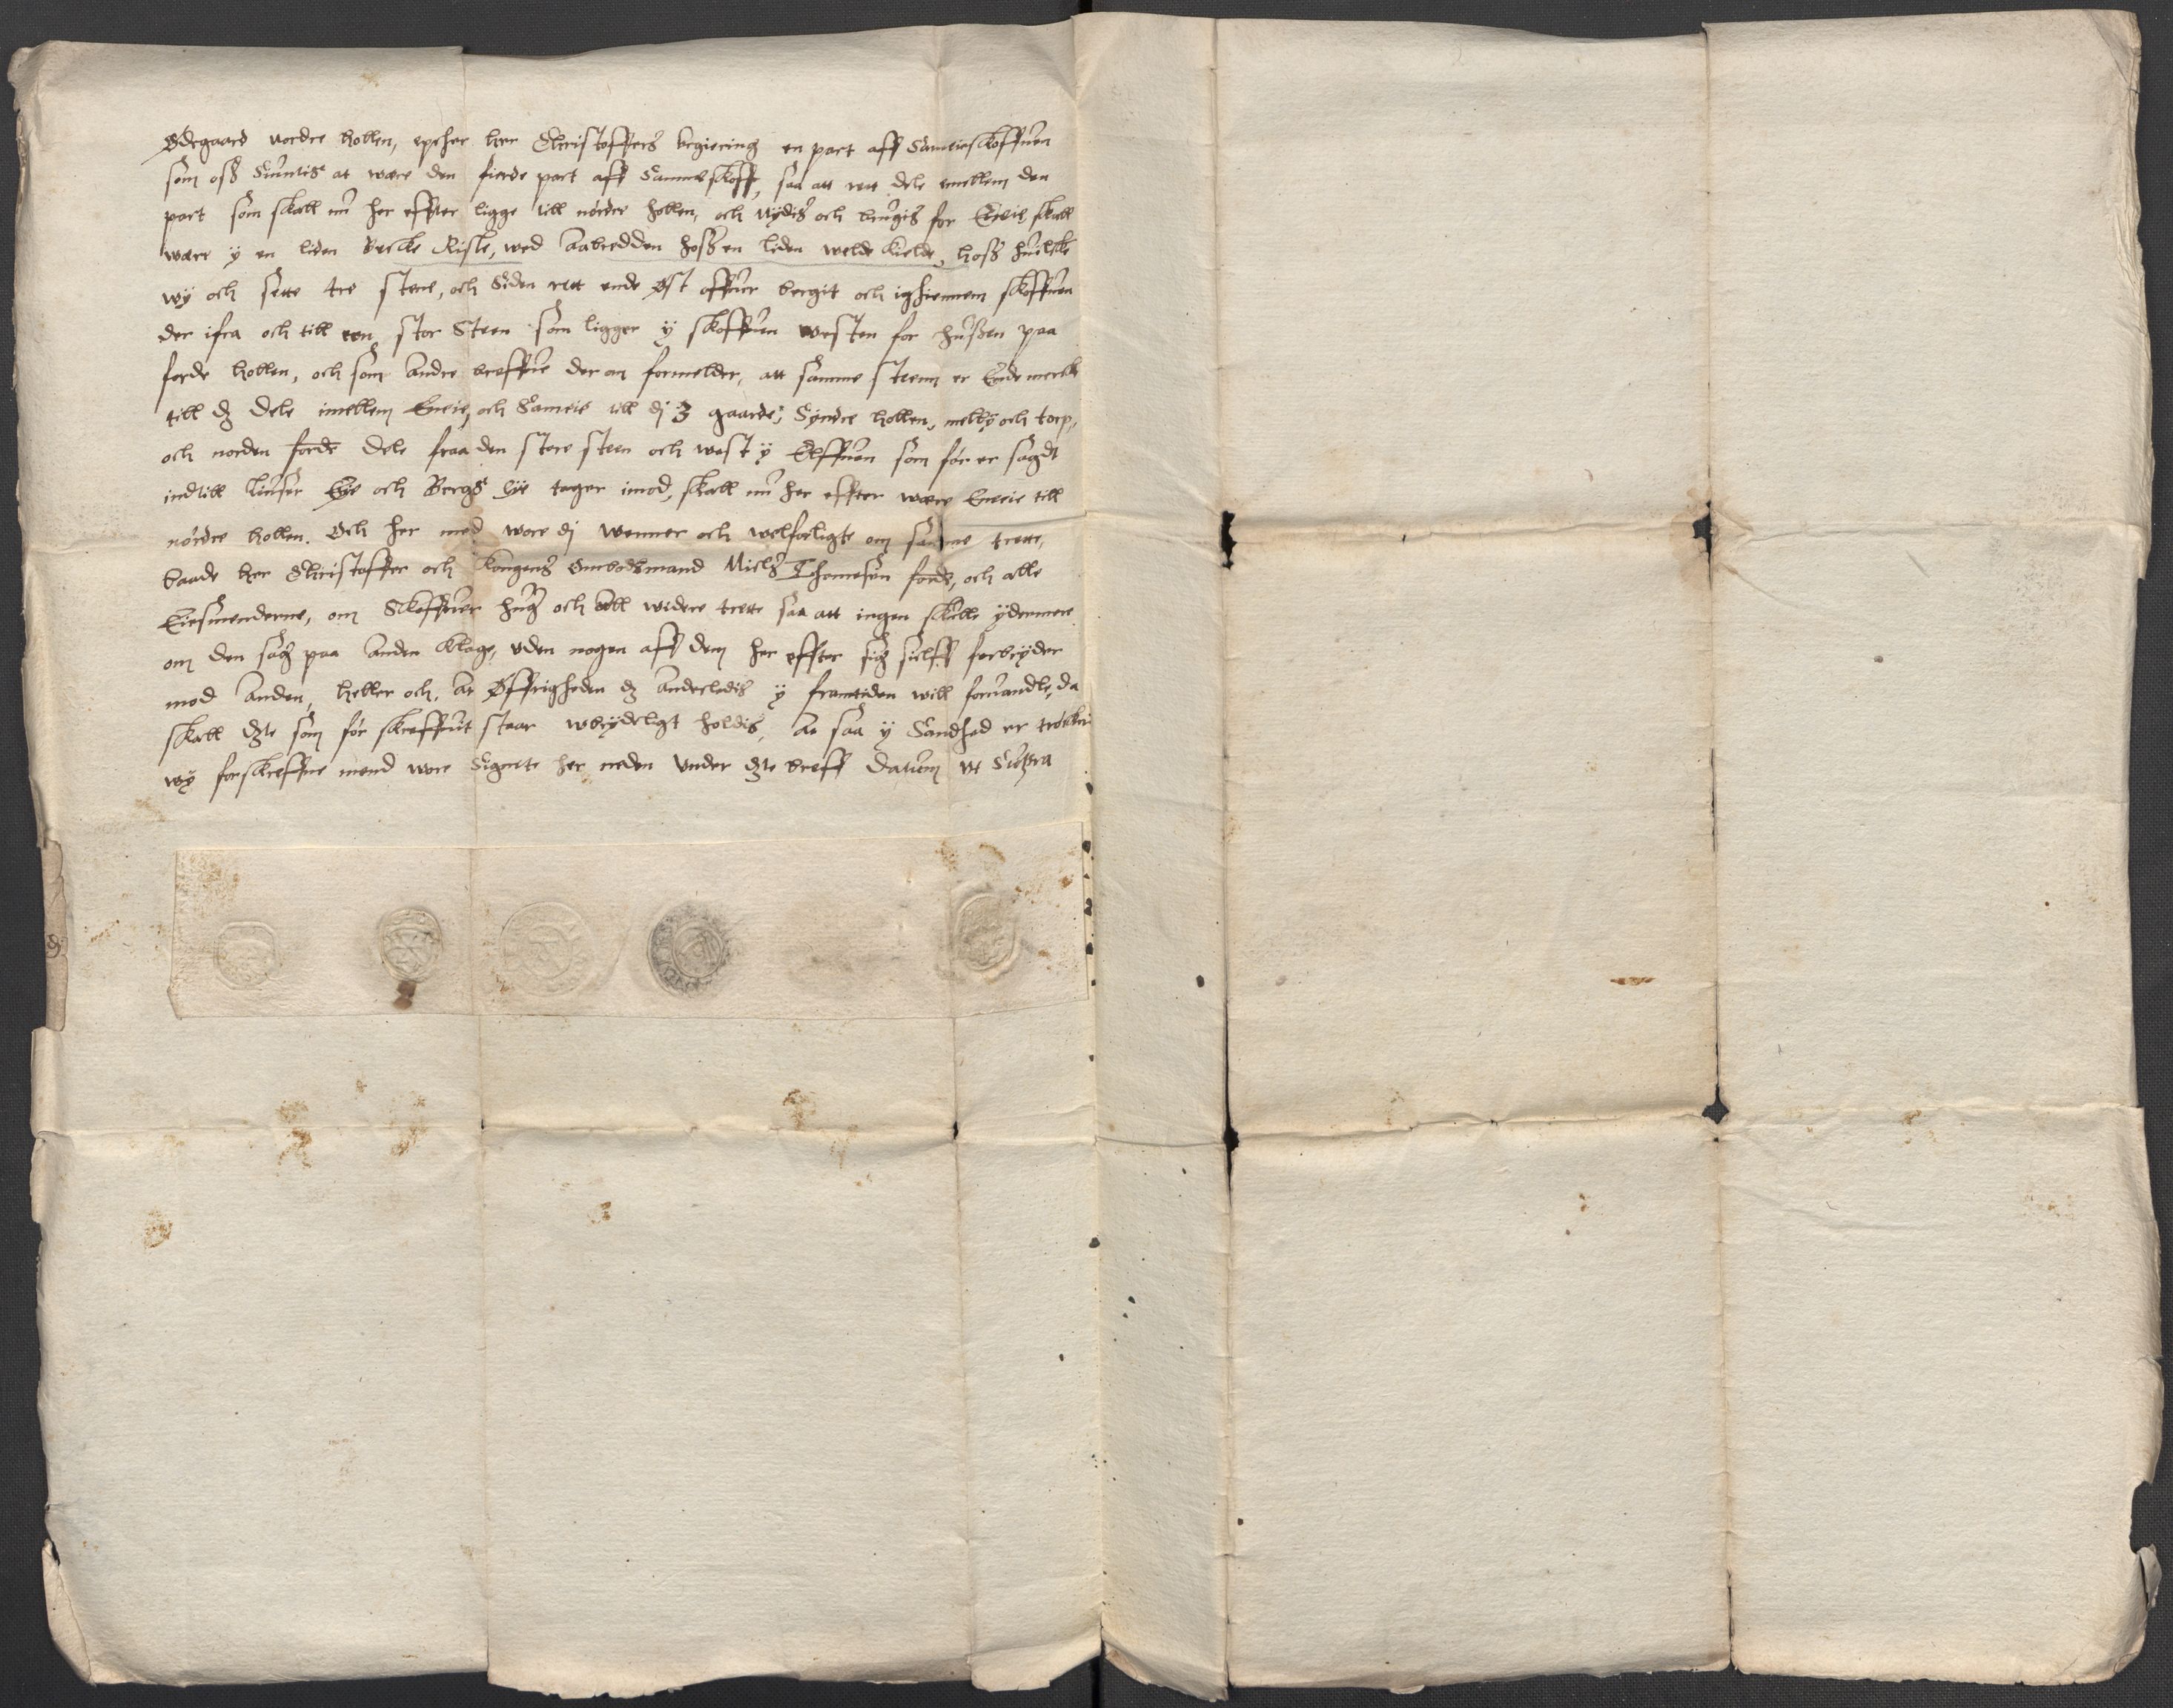 Ødegaard nordre hollen, epther her Christoffers begiering en part aff Sameieskoffuen
som oss Siuntis at were den fierde part aff Samme skoff, saa att rett dele emellem den
part som skall nu her effter ligge till nørdre hollen, och nydis och brugis for Eneie skall
were y en liden Becke Risle, wed aabredden hoss en liden welde kielde, hoss huilcke
wy och sette tre stene, och Siden rett ende Øst offuer bergit och ighiennem skoffuen
der ifra och till een stor Steen som ligger y skoffuen westen for husßen paa
forde hollen, och som andre breffue der om formelder, att samme steenn er Ende mercke
till dj dele imellem Eneie och Sameie till dj 3 gaarde, Syndre hollen, melby och torp,
och norden forde dele fraa den store steen och west y Elffuen som før er sagdt
indtill lunser Eye och Bergs Eye tager imod, skall nu her effter were Eneie till
nørdre hollen. Och her med wore dj wenner och welforligte om samme trette,
baade her Christoffer och kongens Ombodsmand Niels Thomesen forde, och alle
Eiesmenderne, om Skoffuer hug och all widere trette saa att ingen skulle ydermere
om den sag paa anden klage, uden nogen aff dem her effter sig sielff forbryder
mod anden, heller och, at Øffrigheden dj anderledis y framtiden will foruandle, da
skall dette som før skreffuit staar wbrydeligt holdis, At saa y Sandhed er trøcker
wy forskreffne mend wore Signete her neden under dette breff Datum ut Supra